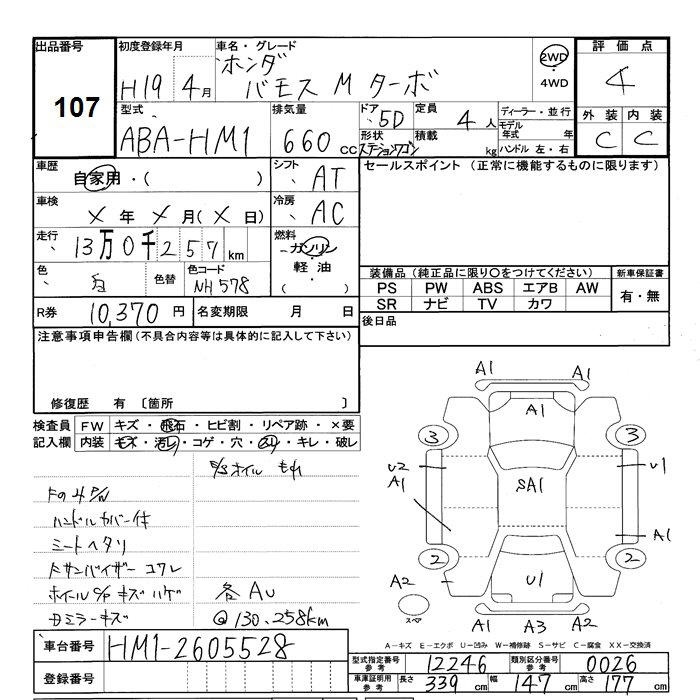 出品番号 初度登録年月 車名・グレード 評価点
107
H19年 4月 ホンダ バモス M ターボ 2WD 4WD 4
型式 排気量 ドア 定員 ディーラー・並行 外装 内装
ABA-HM1 660 cc 5D 4人 モデル年式 年 C C
形状 積載 kg ハンドル 左・右
ステーションワゴン
車歴 自家用・( ) シフト AT セールスポイント (正常に機能するものに限ります)
車検 X 年 X 月 (X 日) 冷房 AC
走行 13万0千257km 燃料 ガソリン
軽油
( )
色 白 色替 色コード NH578 装備品 (純正品に限り○をつけてください) 新車保証書
PS PW ABS エアB AW 有・無
SR ナビ TV カワ
R券 10,370円 名変期限 月 日 後日品
注意事項申告欄 (不具合内容等は具体的に記入して下さい)
修復歴 有 〔箇所 〕
検査員 FW キズ・飛石・ヒビ割・リペア跡・×要
記入欄 内装 キズ・汚レ・コゲ・穴・スリ・キレ・破レ
P/Sオイルもれ
ハンドルカバー付
シートヘタリ
サンバイザー コワレ
ホイールC/P キズハゲ 各AU
ミラーキズ @130.258km
A1 A1
A1
3 3
U2 U1
A1 SA1
A1
2 2
A2 U1
スペア
A1 A3 A2
A-キズ E-エクボ U-凹み W-補修跡 S-サビ C-腐食 XX-交換済
車台番号 HM1-2605528
登録番号
型式指定番号 参考 12246 類別区分番号 参考 0026
車庫証明用 参考 長さ 339cm 幅 147cm 高さ 177cm